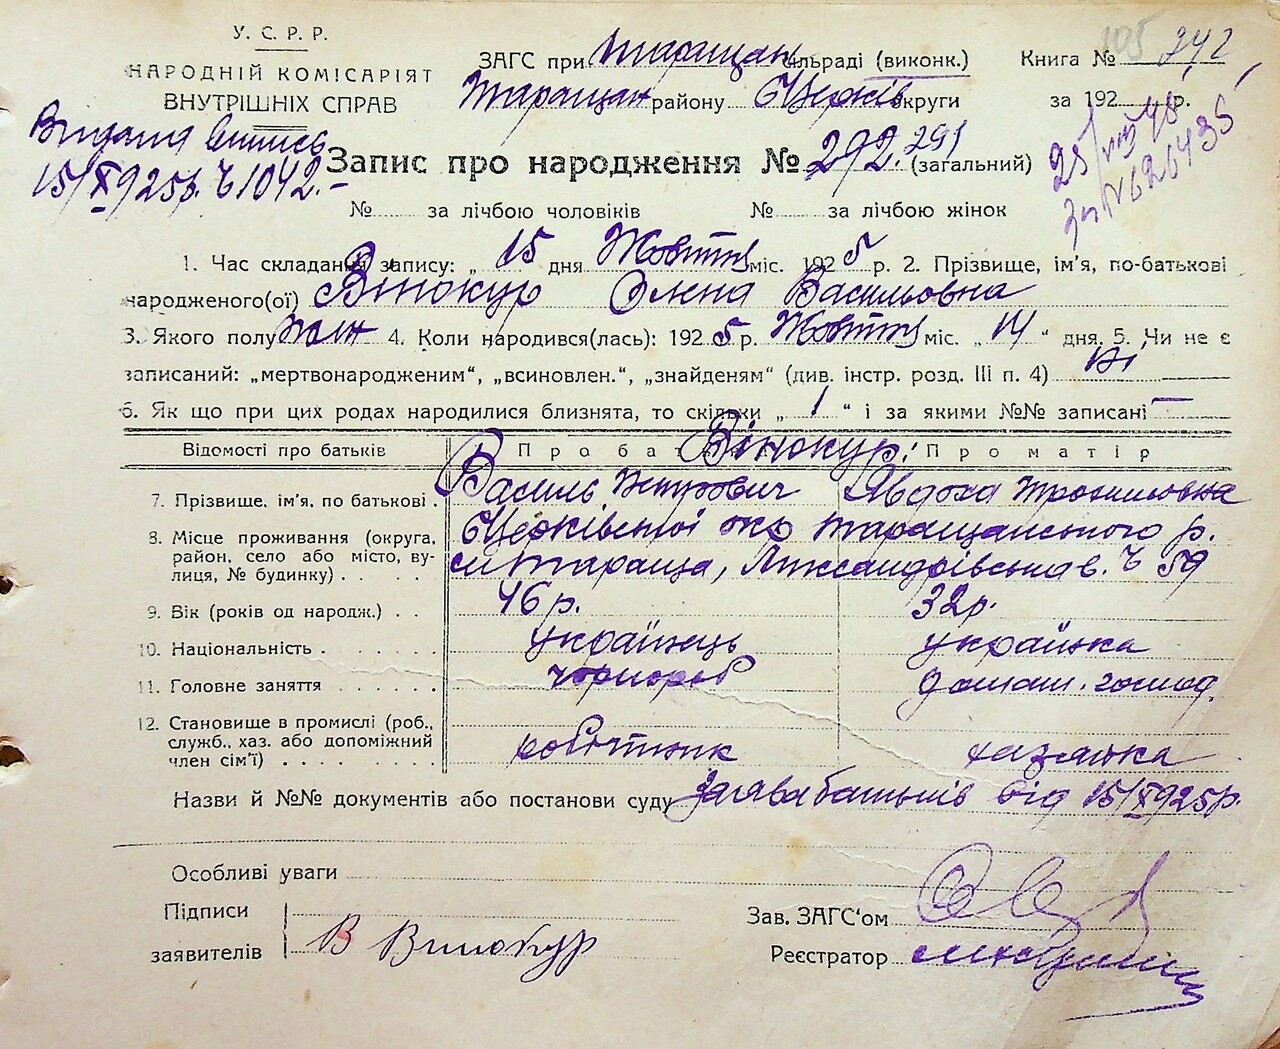 У. С. Р. Р.
НАРОДНІЙ КОМІСАРІЯТ
ВНУТРІШНІХ СПРАВ
ЗАГС при Таращан сільраді (виконк.)
Таращан району Б Церків округи
Книга № 105 242
за 192 р.
Видана випись
15/X 925р. Ч 1042.-
25/VIII 48
№ 626435
Запис про народження № 292. 291 (загальний)
№ за лічбою чоловіків № за лічбою жінок
1. Час складання запису: „ 15 дня Жовтня міс. 1925 р. 2. Прізвище, ім'я, по-батькові
народженого(ої) Вінокур Олена Васильовна
3. Якого полу жін 4. Коли народився(лась): 1925 р. Жовтня міс. „ 14 “ дня. 5. Чи не є
записаний: „мертвонародженим“, „всиновлен.“, „знайденям“ (див. інстр. розд. III п. 4) ні
6. Як що при цих родах народилися близнята, то скільки „ 1 “ і за якими №№ записані —
Відомості про батьків Про бать Про матір
Вінокур:
7. Прізвище, ім'я, по батькові . Василь Явдоха
8. Місце проживання (округа, район, село або місто, вулиця, № будинку) . . . . БЦерківської окр Таращанського р.
м Тараща, Ч 59
9. Вік (років од народж.) . . 46 р. 32 р.
10. Національність . . . . . . українець українка
11. Головне заняття . . . . . . чорнороб домаш. господ.
12. Становище в промислі (роб., служб., хаз. або допоміжний член сім'ї) . . . . . . . робітник хазяйка
Назви й №№ документів або постанови суду Заява батьків від 15/X 925р.
Особливі уваги
Підписи
заявителів В Винокур
Зав. ЗАГС'ом
Реєстратор